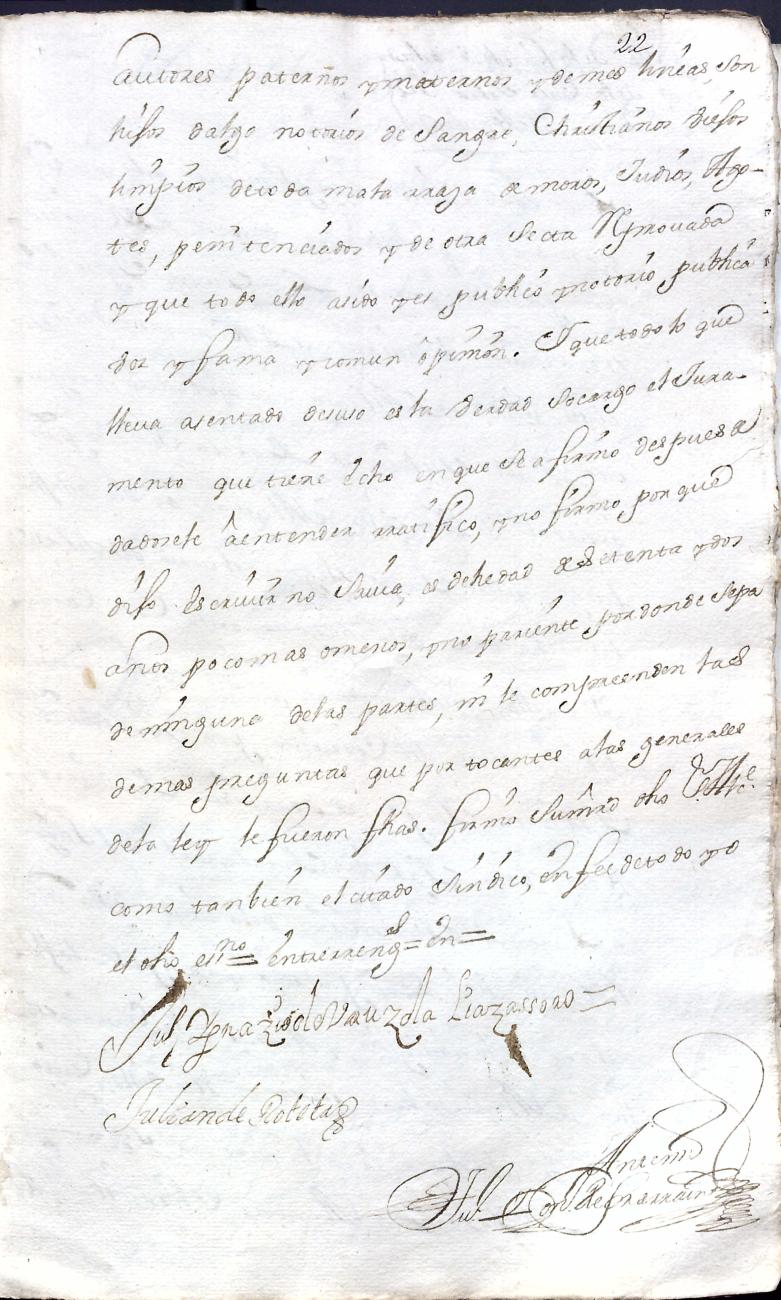 22
autores paternos y maternos y demas lineas, son
hijos dalgo notorios de Sangre, Christianos viejos
limpios de toda mala rraza de moros, Judios, Ago-
tes, penitenciados y de otra Secta Reprovada
y que todo ello asido y es publico y notorio publica
voz y fama y comun opinion. Y que todo lo que
lleva asentado desuso es la verdad Socargo el Jura-
mento que tiene echo en que se afirmo despues de
dadosele a entender rratifico, y no firmo por que
dijo Escrivir no Savia, es dehedad de Setenta y dos
años poco mas omenos, y no pariente por donde sepa
de ninguna delas partes, ni le compreenden las
demas preguntas que por tocantes alas generales
dela ley le fueron fhas. firmo Sumrd dho Alle.
como tambien el citado Sindico, en fee de todo yo
el dho essno = entrerrengs = en =
Juº Ygnazio de Uruzola Lizazssoro =
Julian de Roteta
Antemi
Juº